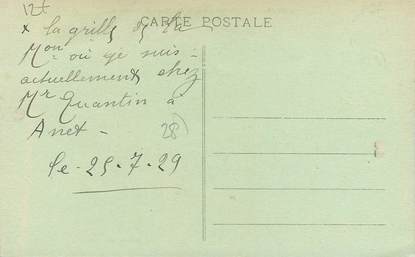 12f
CARTE POSTALE
x la grille de la
Mon où je suis
actuellement chez
Mr Quantin à
Anet -
28
le - 25 - 7 - 29